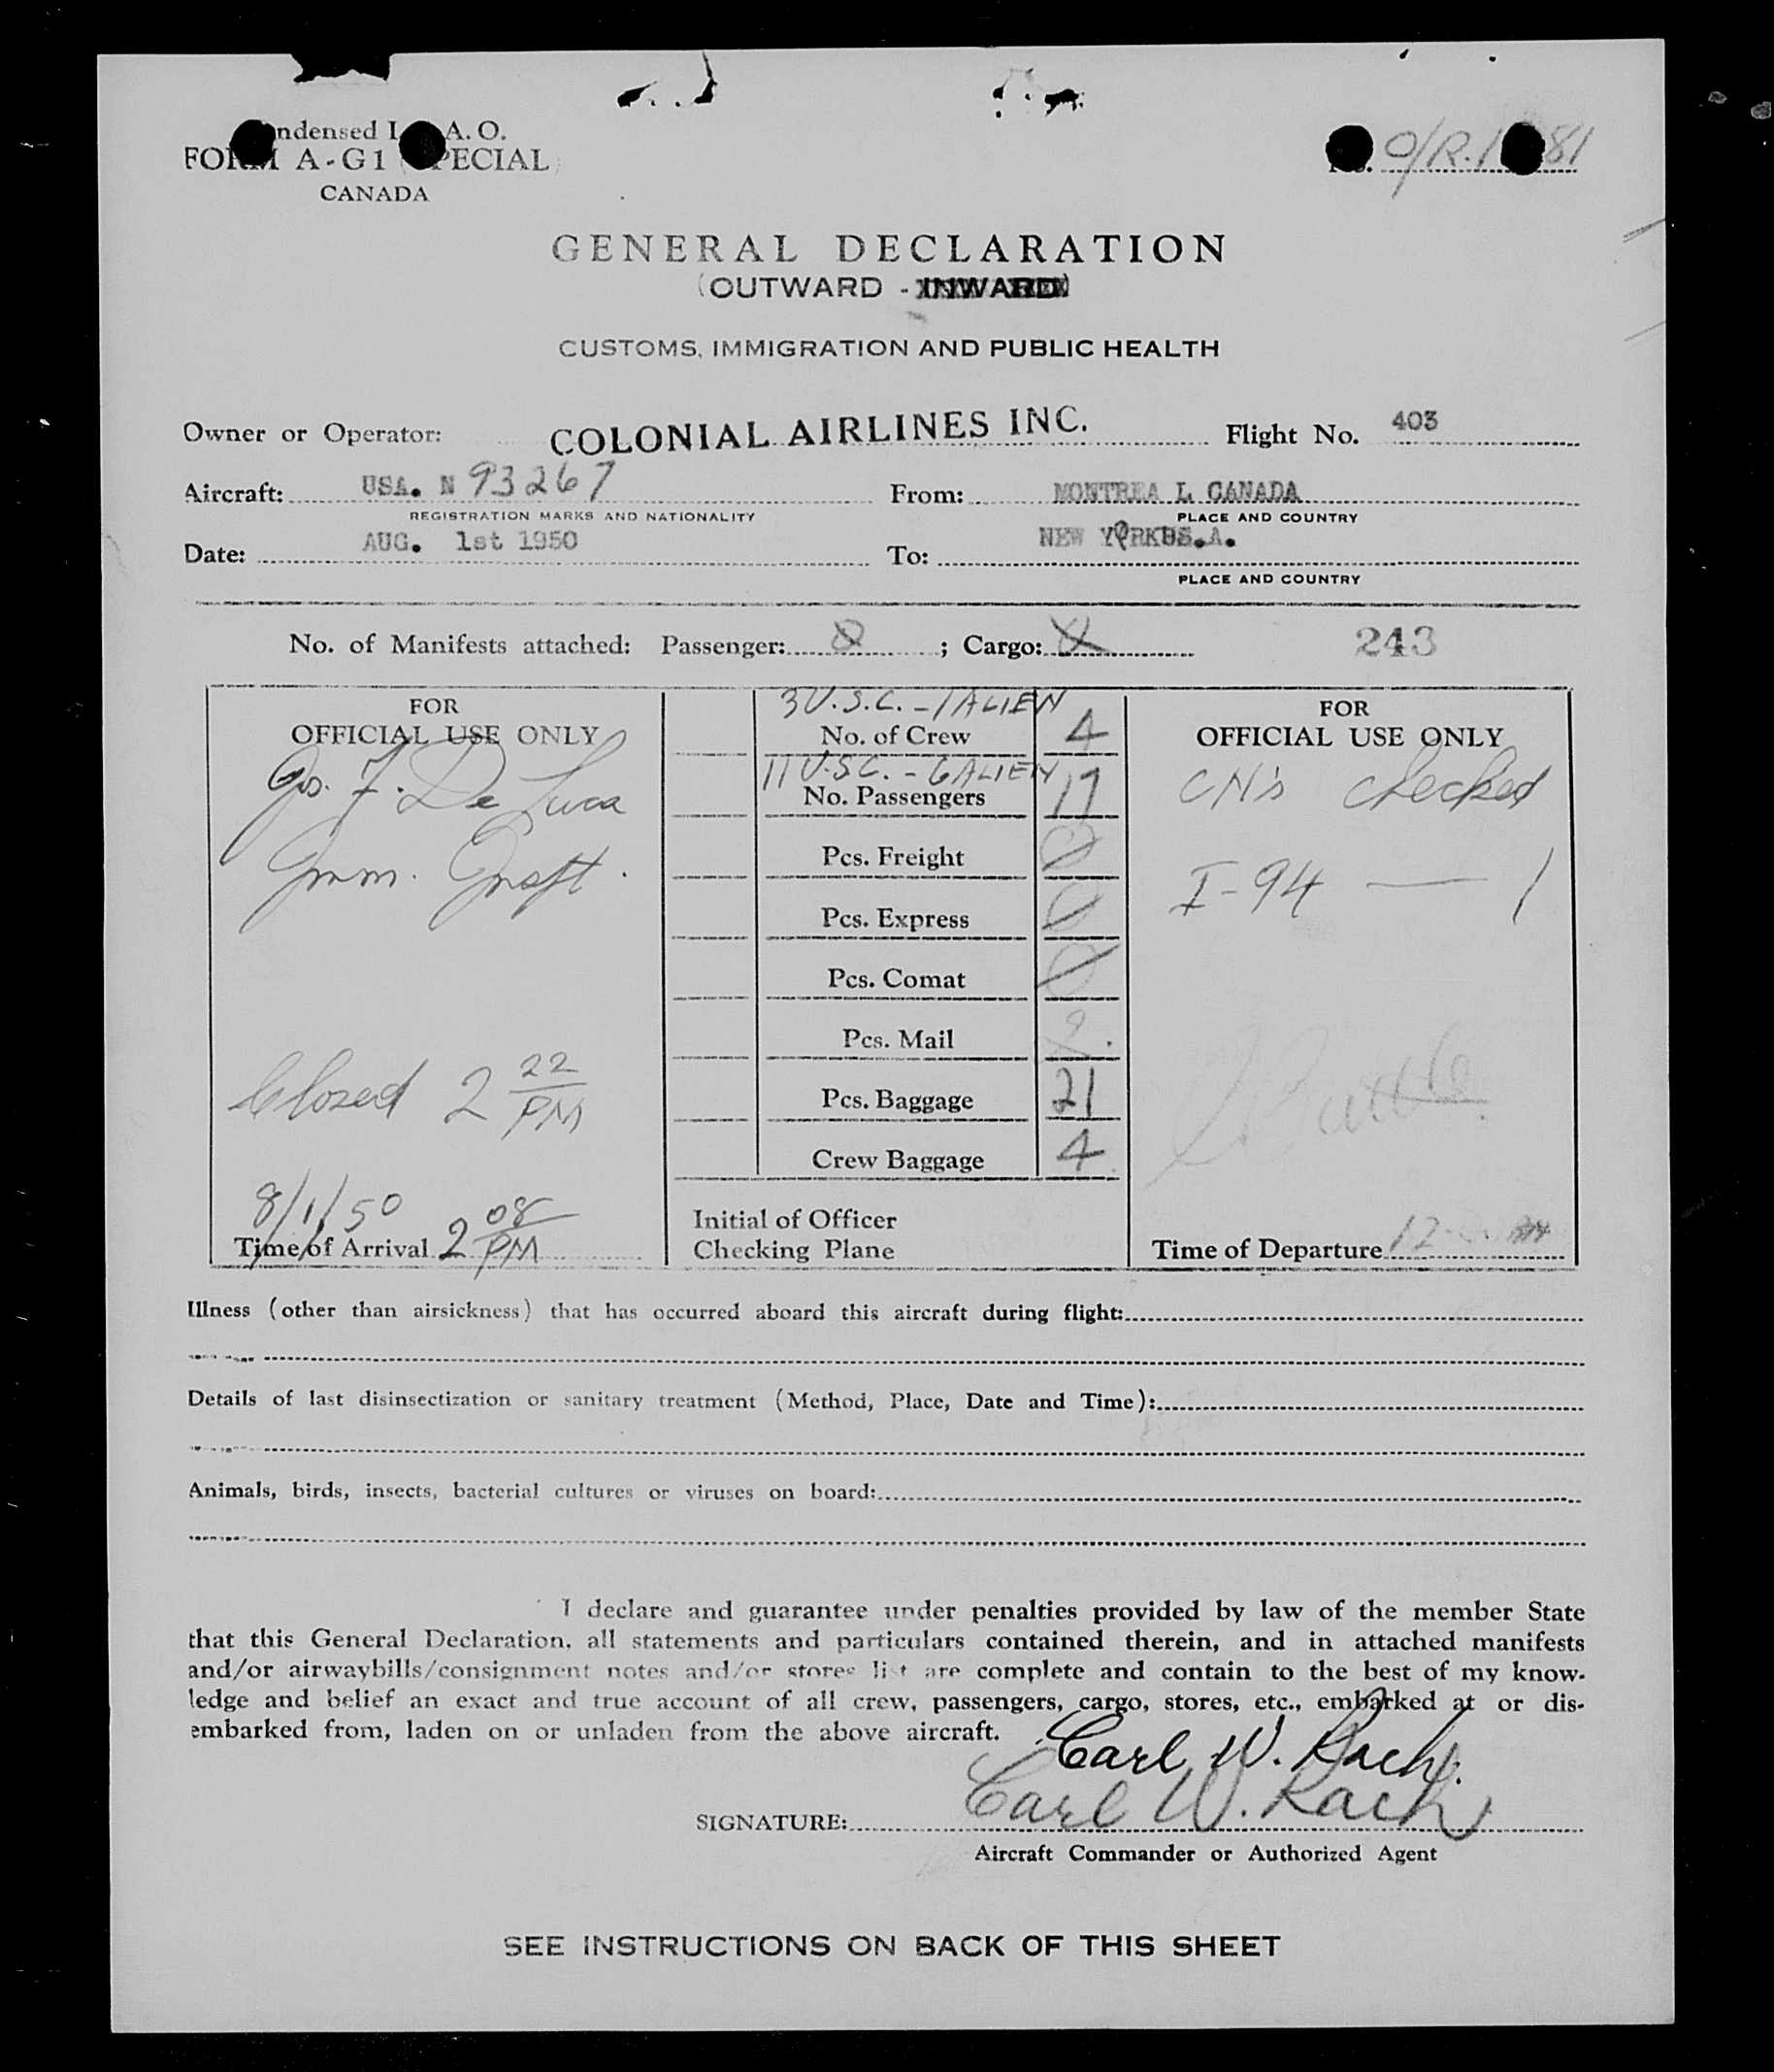 ndensed I A. O.
FORM A-G1 PECIAL
CANADA
O/R.1 81
GENERAL DECLARATION
(OUTWARD - INWARD)
CUSTOMS, IMMIGRATION AND PUBLIC HEALTH
Owner or Operator: COLONIAL AIRLINES INC. Flight No. 403
Aircraft: USA. N 93267 From: MONTREA L CANADA
REGISTRATION MARKS AND NATIONALITY PLACE AND COUNTRY
Date: AUG. 1st 1950 To: NEW YORKUS.A.
PLACE AND COUNTRY
No. of Manifests attached: Passenger: ; Cargo: 243
FOR
OFFICIAL USE ONLY
De Luca
Imm. Inspt.
Closed 2 22 PM
8/1/50
Time of Arrival 2 08 PM
3 U.S.C. - 1 ALIEN
No. of Crew 4
11 U.S.C. - 6 ALIEN
No. Passengers 17
Pcs. Freight
Pcs. Express
Pcs. Comat
Pcs. Mail
Pcs. Baggage 21
Crew Baggage 4
Initial of Officer
Checking Plane
FOR
OFFICIAL USE ONLY
CN's checked
I-94 — 1
Time of Departure 12
Illness (other than airsickness) that has occurred aboard this aircraft during flight:
Details of last disinsectization or sanitary treatment (Method, Place, Date and Time):
Animals, birds, insects, bacterial cultures or viruses on board:
I declare and guarantee under penalties provided by law of the member State
that this General Declaration, all statements and particulars contained therein, and in attached manifests
and/or airwaybills/consignment notes and/or stores list are complete and contain to the best of my know-
ledge and belief an exact and true account of all crew, passengers, cargo, stores, etc., embarked at or dis-
embarked from, laden on or unladen from the above aircraft.
Carl W. Rach.
SIGNATURE: Carl W. Rach
Aircraft Commander or Authorized Agent
SEE INSTRUCTIONS ON BACK OF THIS SHEET